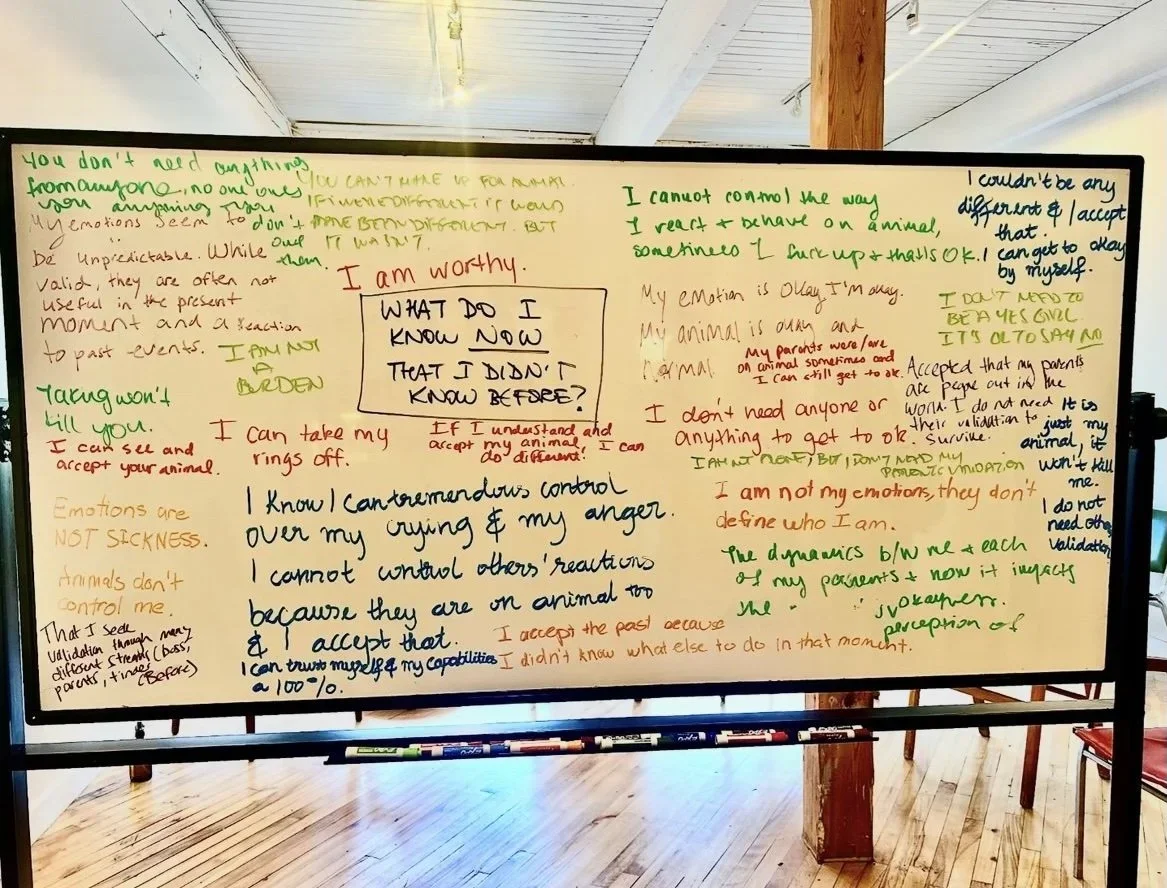 You don't need anything
from anyone, no one owes
you anything you
don't
owe
them.
My emotions seem to
be unpredictable. While
valid, they are often not
useful in the present
moment and a reaction
to past events.
YOU CAN'T MAKE UP FOR ANIMAL.
IF I WERE DIFFERENT IT WOULD
HAVE BEEN DIFFERENT. BUT
IT WASN'T.
I am worthy.
WHAT DO I
KNOW NOW
THAT I DIDN'T
KNOW BEFORE?
I AM NOT
A
BURDEN
Talking won't
kill you.
I can see and
accept your animal.
I can take my
rings off.
If I understand and
accept my animal, I can
do different!
Emotions are
NOT SICKNESS.
Animals don't
control me.
That I seek
validation through many
different streams (boss,
parents, tinder)
(Before)
I know I can tremendous control
over my crying & my anger.
I cannot control others' reactions
because they are on animal too
& I accept that.
I can trust myself & my capabilities
a 100%.
I accept the past because
I didn't know what else to do in that moment.
I cannot control the way
I react + behave on animal,
sometimes I fuck up + that's OK.
I couldn't be any
different & I accept
that.
I can get to okay
by myself.
My emotion is okay I'm okay.
My animal is okay and
normal
My parents were/are
on animal sometimes and
I can still get to ok.
I DON'T NEED TO
BE A YES GIRL.
IT'S OK TO SAY NO
Accepted that my parents
are people out in the
world. I do not need
their validation to
survive.
I don't need anyone or
anything to get to ok.
It is
just my
animal, it
won't kill
me.
I do not
need others
validation
I AM NOT ALONE, BUT I DON'T NEED MY
PARENTS VALIDATION
I am not my emotions, they don't
define who I am.
The dynamics b/w me + each
of my parents + how it impacts
the okayness.
perception of